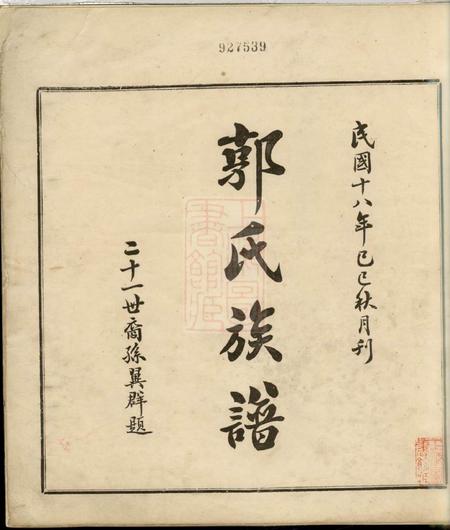 927539
民國十八年己巳秋月刊
郭氏族譜
二十一世裔孫翼群題